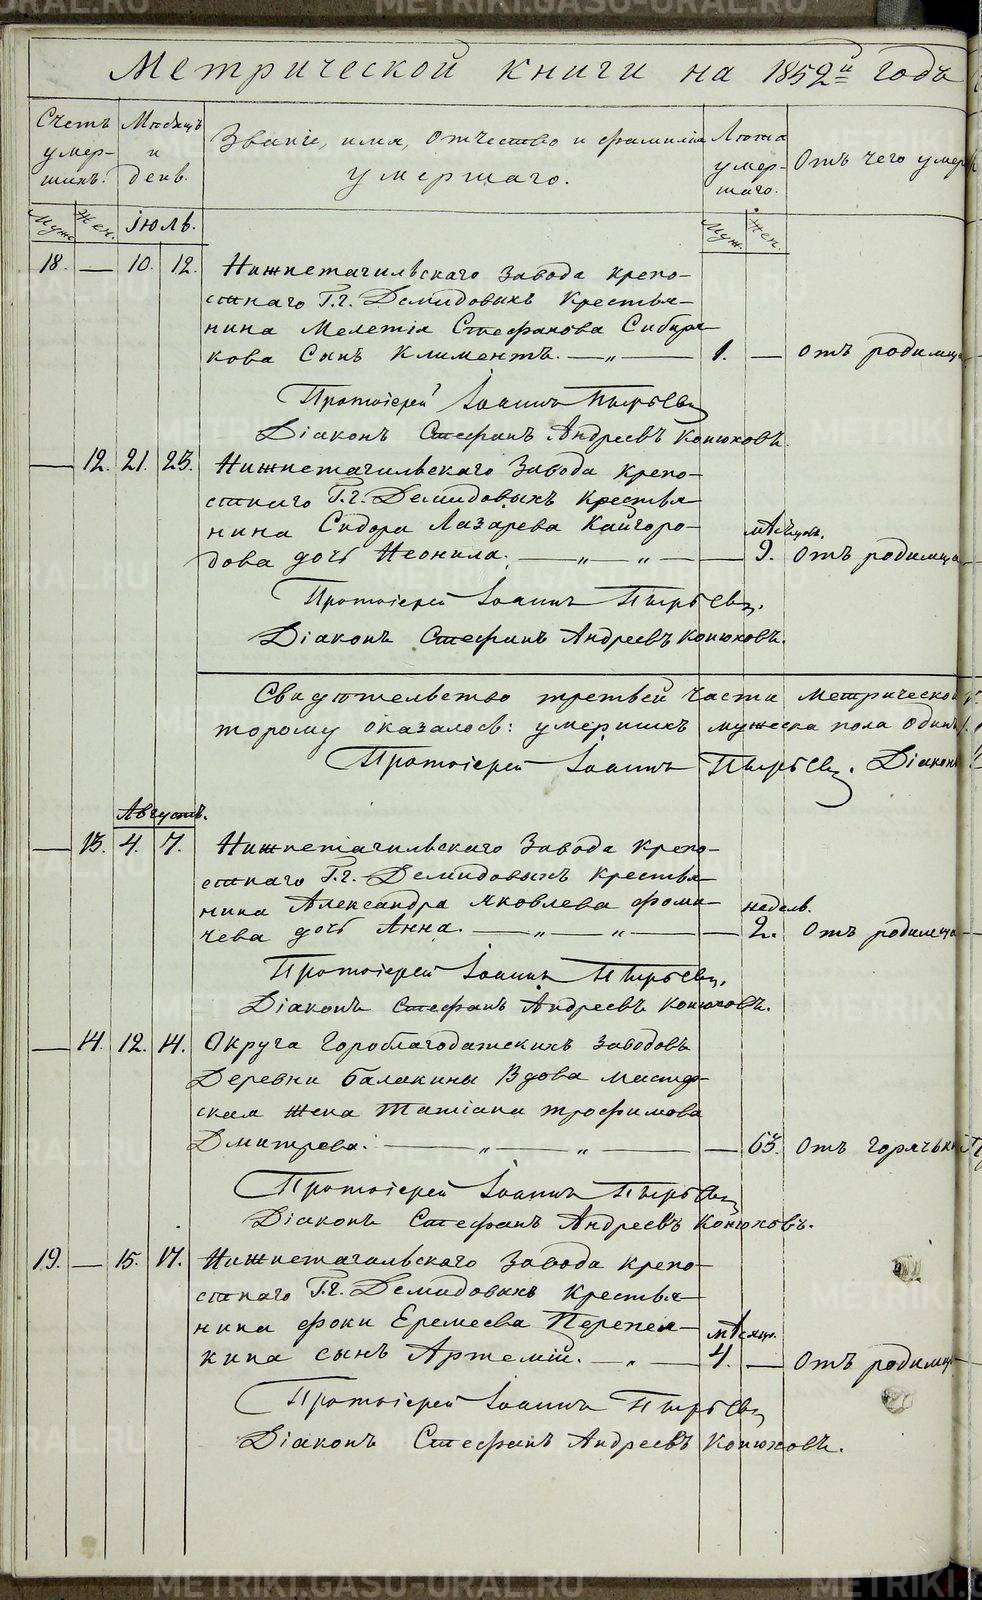 METRIKI.GASO-URAL.RU
Метрической книги на 1852й годъ
Счетъ умер- шихъ.
Мѣсяцъ и день.
Званіе, имя, отчество и фамилія умершаго.
Лѣта умер- шаго.
Отъ чего умер
Муж.
Жен.
Іюль.
Муж.
Жен.
18. — 10. 12. Нижнетагильскаго завода крепо-
стнаго Г.г. Демидовыхъ крестья-
нина Мелетія Стефанова Сибиря-
кова сынъ Климентъ. — „ — 1. — отъ родимца
Протоіерей Іоаннъ Пырьевъ
Діаконъ Стефанъ Андреевъ Конюховъ.
— 12. 21. 23. Нижнетагильскаго завода крепо-
стнаго Г.г. Демидовыхъ крестья-
нина Сидора Лазарева Кайгоро- мѣсяцовъ.
дова дочь Неонила. — „ — „ — — 9. отъ родимца
Протоіерей Іоаннъ Пырьевъ.
Діаконъ Стефанъ Андреевъ Конюховъ.
Свидѣтельство третьей части метрической
торому оказалось: умершихъ мужеска пола одинъ
Протоіерей Іоаннъ Пырьевъ. Діаконъ
Августъ.
— 13. 4. 7. Нижнетагильскаго завода крепо-
стнаго Г.г. Демидовыхъ крестья-
нина Александра Яковлева Фоми- недель.
чева дочь Анна. — „ — „ — — 2. отъ родимца
Протоіерей Іоаннъ Пырьевъ.
Діаконъ Стефанъ Андреевъ Конюховъ.
— 14. 12. 14. Округа Гороблагодатскихъ заводовъ
Деревни Балакины вдова мастер-
ская жена Татіана Трофимова
Дмитрева. — „ — „ — — 63. отъ горячки
Протоіерей Іоаннъ Пырьевъ
Діаконъ Стефанъ Андреевъ Конюховъ.
19. — 15. 17. Нижнетагильскаго завода крепо-
стнаго Г.г. Демидовыхъ крестья-
нина Фоки Еремеева Перепел- мѣсяц.
кина сынъ Артемій. — „ — 4. — отъ родимца
Протоіерей Іоаннъ Пырьевъ
Діаконъ Стефанъ Андреевъ Конюховъ.
METRIKI.GASO-URAL.RU